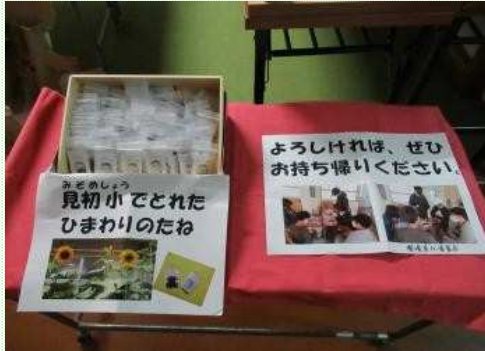 みぞめしょう
見初小でとれた
ひまわりのたね
よろしければ、ぜひ
お持ち帰りください。